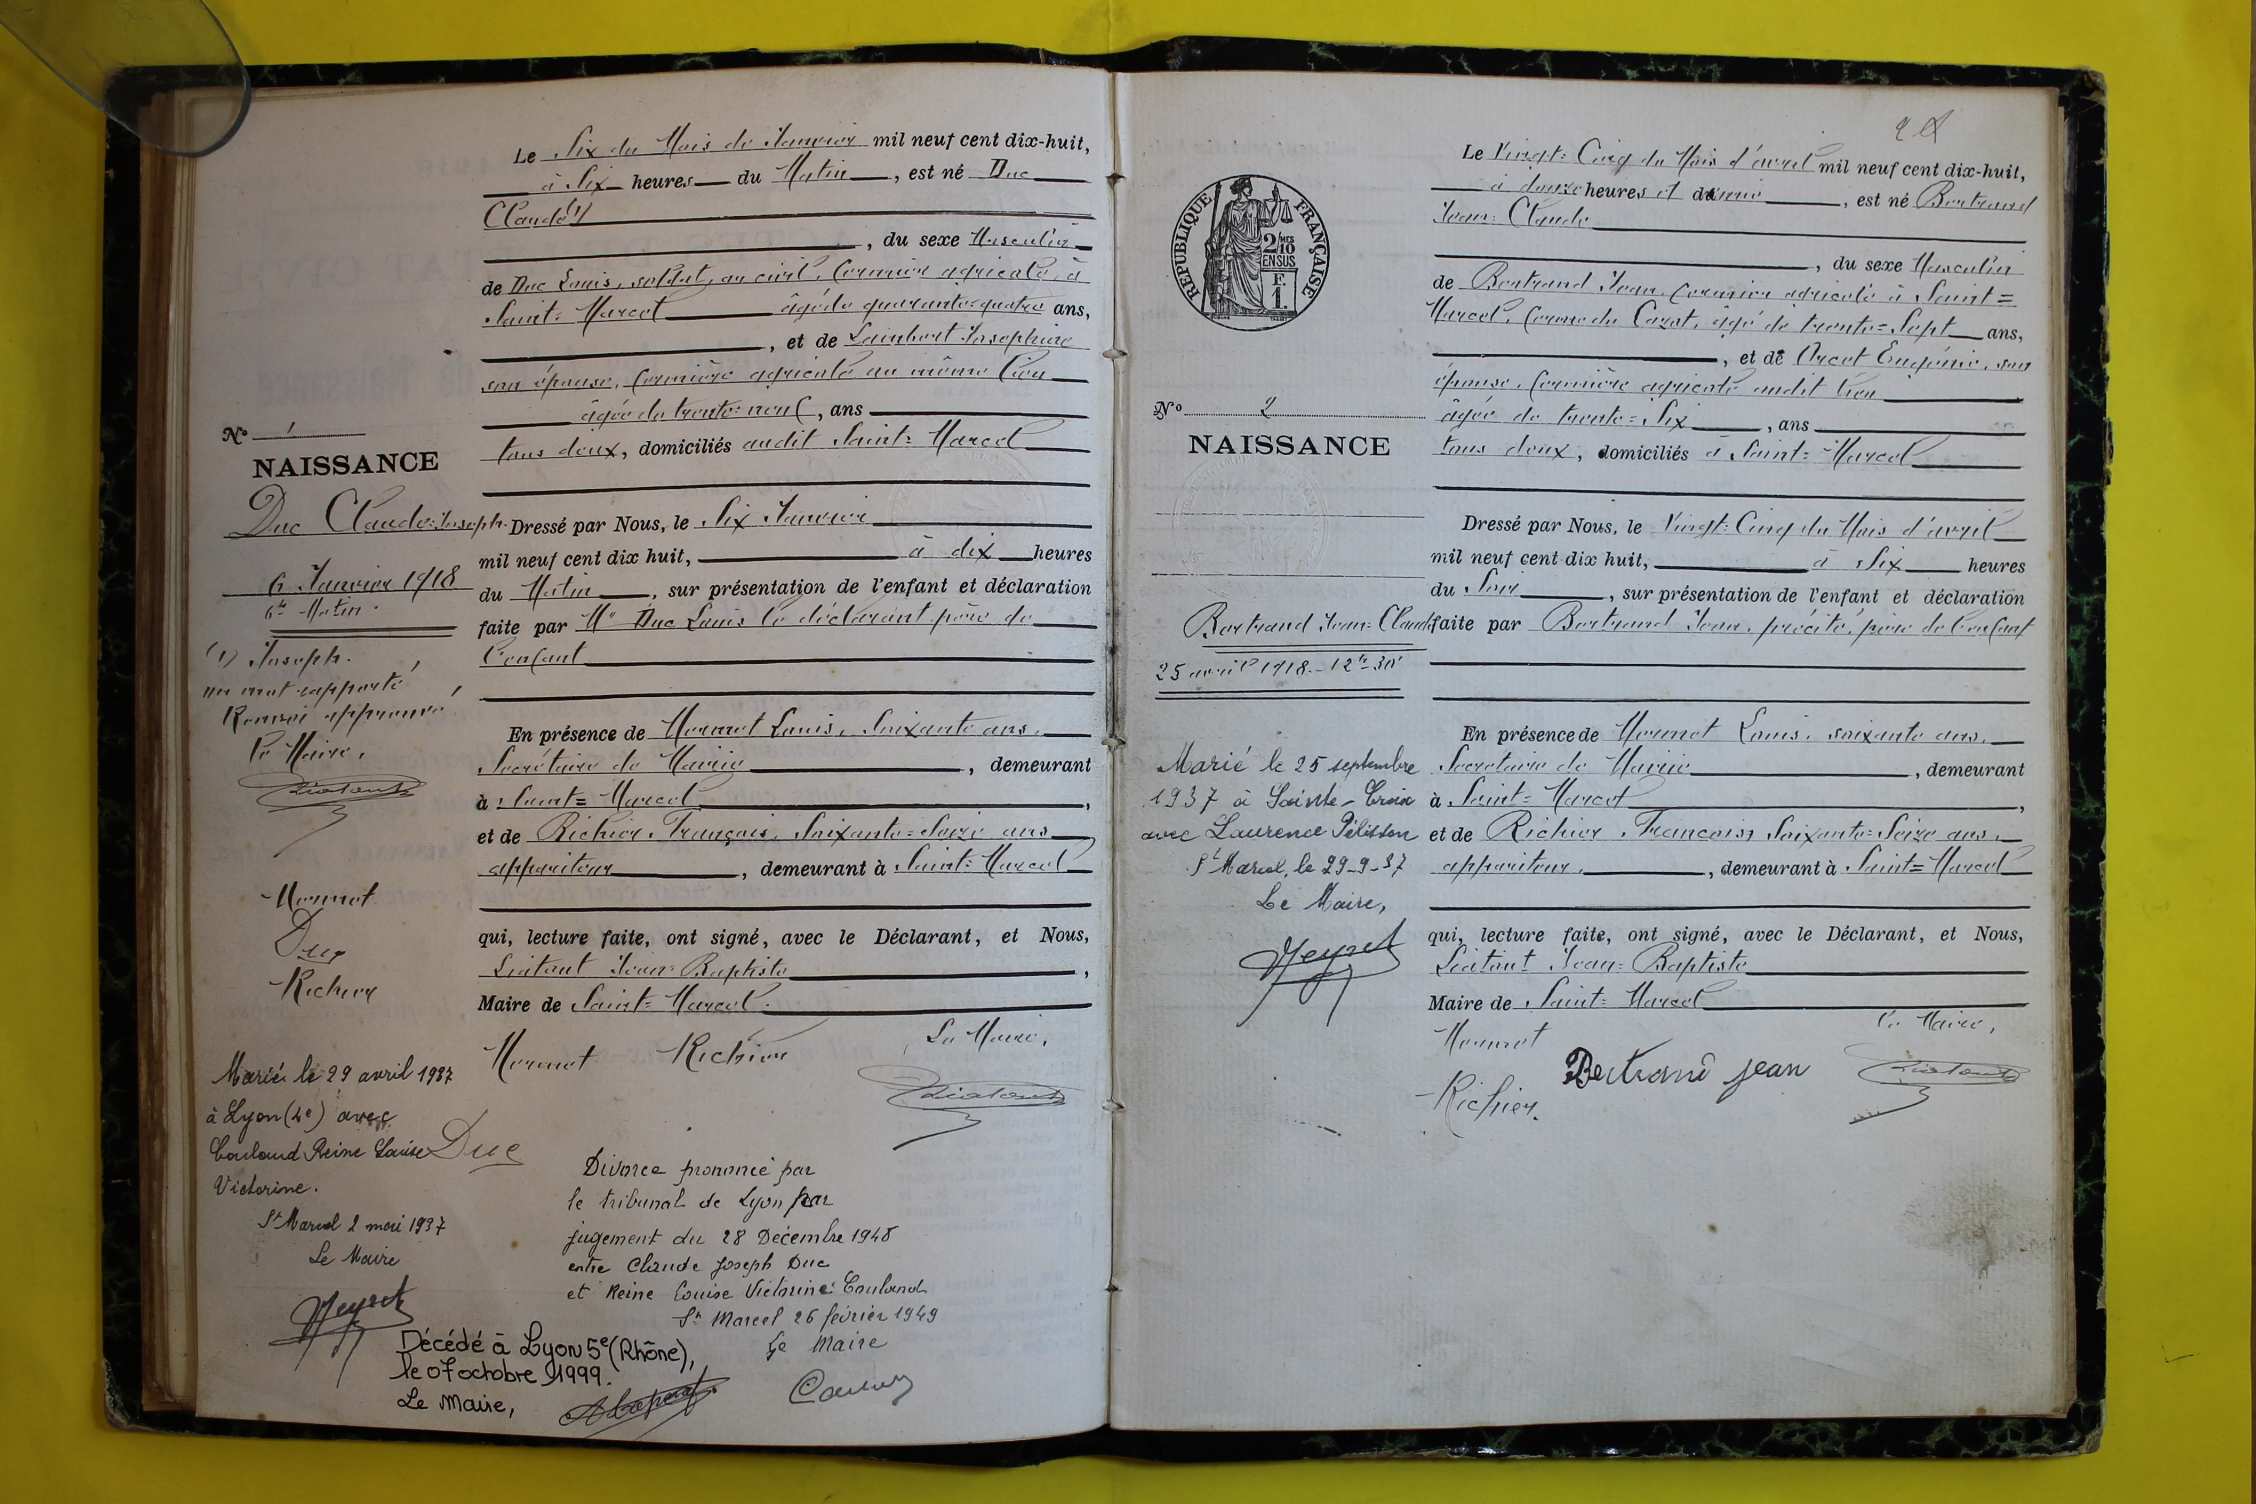 Le Six du Mois de Janvier mil neuf cent dix-huit,
à Six heures du Matin, est né Duc
Claude (1)
, du sexe Masculin
de Duc Louis, soldat, au civil, fermier agricole, à
Saint=Marcel âgé de quarante=quatre ans,
, et de Lambert Josephine
son épouse, fermière agricole au même lieu
âgée de trente=neuf, ans
tous deux, domiciliés audit Saint=Marcel
N° 1
NAISSANCE
Duc Claude=Joseph.
6 Janvier 1918
6h Matin.
(1) Joseph.
un mot rapporté
Renvoi approuvé
Le Maire,
Liatout
Mermet
Duc
Richier
Dressé par Nous, le Six Janvier
mil neuf cent dix huit, à dix heures
du Matin, sur présentation de l'enfant et déclaration
faite par Mr Duc Louis le déclarant père de
l'enfant
En présence de Mermet Louis, Soixante ans,
Secrétaire de Mairie, demeurant
à Saint=Marcel,
et de Richier François, Soixante=Seize ans
appariteur, demeurant à Saint=Marcel
qui, lecture faite, ont signé, avec le Déclarant, et Nous,
Liatout Jean=Baptiste,
Maire de Saint=Marcel.
Mermet Richier Le Maire,
Liatout
Duc
Marié le 29 avril 1937
à Lyon (4e) avec
Couland Reine Louise
Victorine.
St Marcel 2 mai 1937
Le Maire
Meyret
Divorce prononcé par
le tribunal de Lyon par
jugement du 28 Décembre 1948
entre Claude Joseph Duc
et Reine Louise Victorine Couland
St Marcel 26 février 1949
Le Maire
Décédé à Lyon 5e (Rhône),
le 07 octobre 1999.
Le Maire,
2
Le Vingt=Cinq du Mois d'avril mil neuf cent dix-huit,
à douze heures et demie, est né Bertrand
Jean=Claude
, du sexe Masculin
de Bertrand Jean, fermier agricole à Saint=
Marcel, ferme du Cazot, âgé de trente=Sept ans,
, et de Arcet Eugénie, son
épouse, fermière agricole audit lieu
âgée de trente=Six, ans
tous deux, domiciliés à Saint=Marcel
RÉPUBLIQUE FRANÇAISE
2/10 MES
EN SUS
F.
1.
N° 2
NAISSANCE
Bertrand Jean=Claude
25 avril 1918 - 12h-30'
Marié le 25 septembre
1937 à Sainte-Croix
avec Laurence Pélisson
St Marcel, le 29-9-37
Le Maire,
Meyret
Dressé par Nous, le Vingt=Cinq du Mois d'avril
mil neuf cent dix huit, à Six heures
du Soir, sur présentation de l'enfant et déclaration
faite par Bertrand Jean, précité, père de l'enfant
En présence de Mermet Louis, soixante ans,
Secretaire de Mairie, demeurant
à Saint=Marcel,
et de Richier Francois, Soixante=Seize ans,
appariteur, demeurant à Saint=Marcel
qui, lecture faite, ont signé, avec le Déclarant, et Nous,
Liatout Jean=Baptiste
Maire de Saint=Marcel
Mermet Le Maire,
Bertrand jean Liatout
Richier.